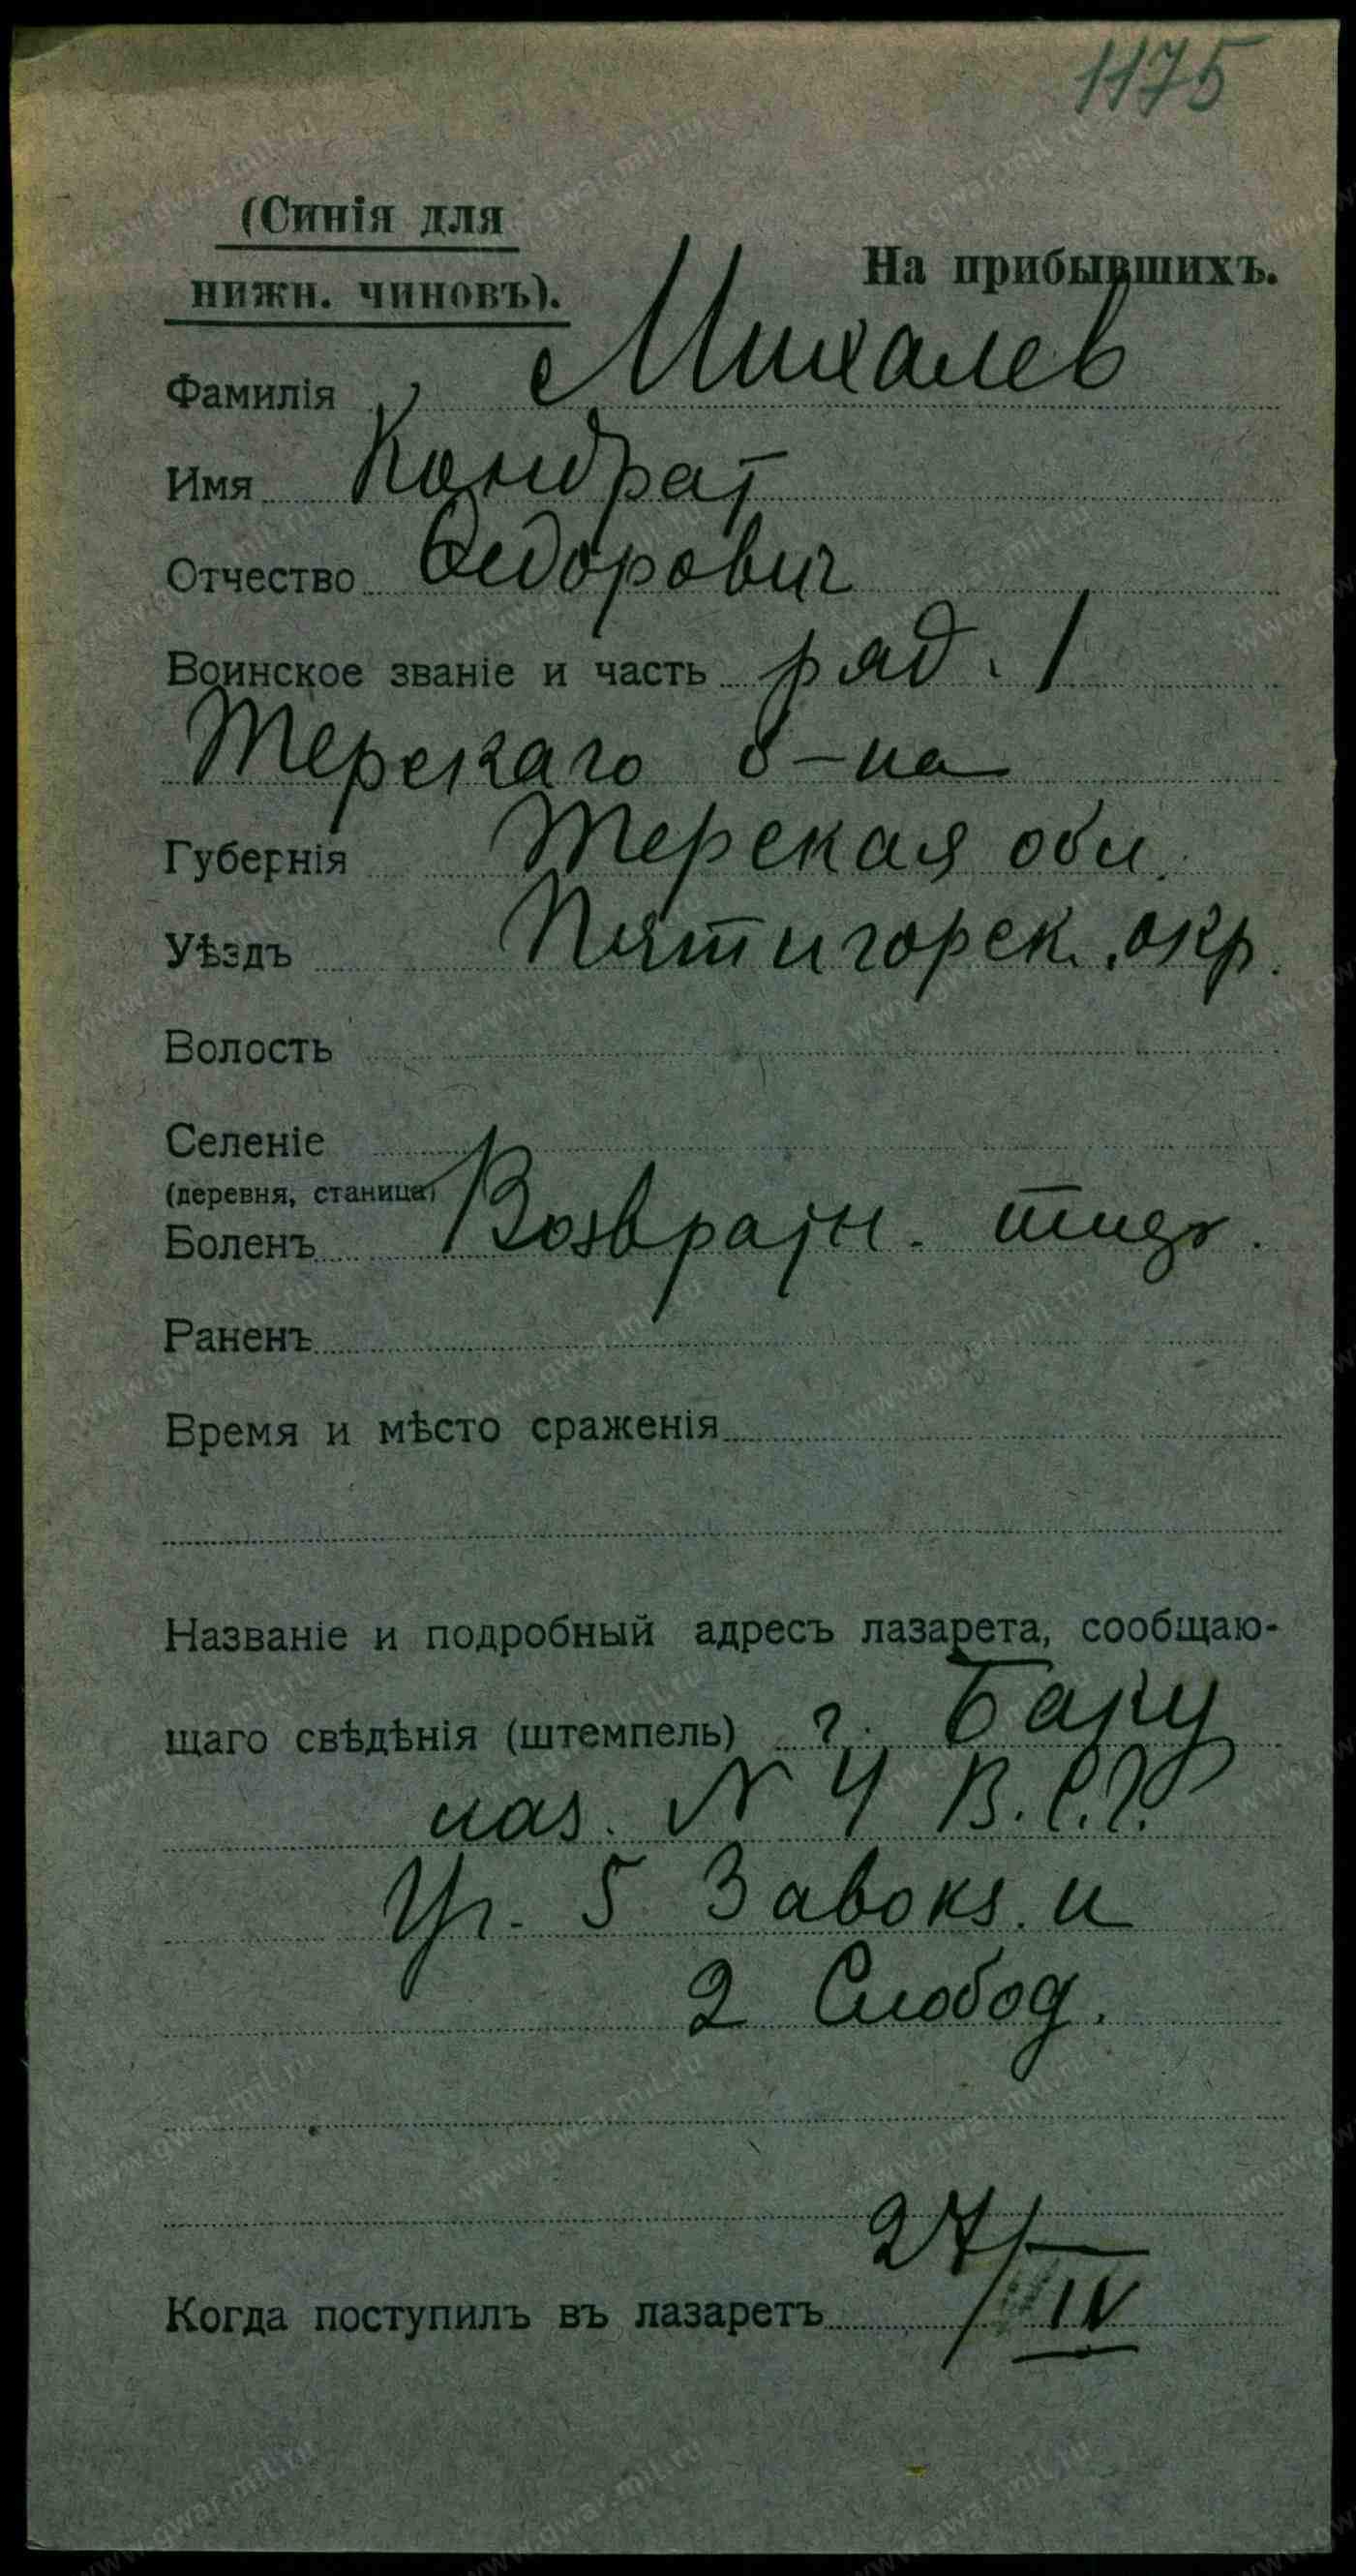 1175
(Синія для
нижн. чиновъ).
На прибывшихъ.
Фамилія Михалев
Имя Кондрат
Отчество Федорович
Воинское званіе и часть ряд. 1
Терскаго б-на
Губернія Терская обл.
Уѣздъ Пятигорск. окр.
Волость
Селеніе
(деревня, станица)
Боленъ Возвратн. тиф.
Раненъ
Время и мѣсто сраженія
Названіе и подробный адресъ лазарета, сообщаю-
щаго свѣдѣнія (штемпель) г. Баку
лаз. N 4 В.С.Г.
Уг. 5 Завокз. и
2 Слобод.
Когда поступилъ въ лазаретъ 27/IV
www.gwar.mil.ru